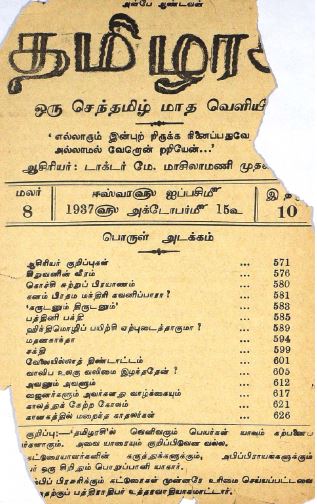 அன்பே ஆண்டவன்
தமிழர
ஒரு செந்தமிழ் மாத வெளியீ
'எல்லாரும் இன்புற் றிருக்க நினைப்பதுவே
அல்லாமல் வேறொன் றறியேன்...'
ஆசிரியர்: டாக்டர் மே. மாசிலாமணி முத
மலர் 8
ஈஸ்வர௵ ஐப்பசி௴
1937௵ அக்டோபர்௴ 15௳
இ 10
பொருள் அடக்கம்
ஆசிரியர் குறிப்புகள் ... 571
சிறுவனின் வீரம் ... 576
கொச்சி சுற்றுப் பிரயாணம் ... 580
கனம் பிரதம மந்திரி கவனிப்பாரா? ... 581
'கருடனும் திருடனும்' ... 583
பத்தினி பக்தி ... 585
ஹிந்திமொழிப் பயிற்சி ஏற்புடைத்தாகுமா? ... 589
மதனகாந்தா ... 594
சக்தி ... 599
வேலையில்லாத் திண்டாட்டம் ... 601
வாலிப உலகு வலிமை இழந்ததேன்? ... 605
அவனும் அவளும் ... 612
ஜைனர்களும் அவர்களது வாழ்க்கையும் ... 617
காலத்துக் கேற்ற கோலம் ... 621
கானகத்தில் மறைந்த காதலர்கள் ... 626
குறிப்பு:—'தமிழரசி'ல் வெளிவரும் பெயர்கள் யாவும் கற்பனைப்
பர்களாகும். அவை யாரையும் குறிப்பிடுவன வல்ல.
கட்டுரையாளர்களின் கருத்துகளுக்கும், அபிப்பிராயங்களுக்கும்
ர் ஒரு சிறிதும் பொறுப்பாளி யாகார்.
ப்பிப் பிரசுரிக்கும் கட்டுரைகள் முன்னரே உரிமை செய்யப்பட்டவை
தற்குப் பத்திராதிபர் உத்தரவாதியாகமாட்டார்.